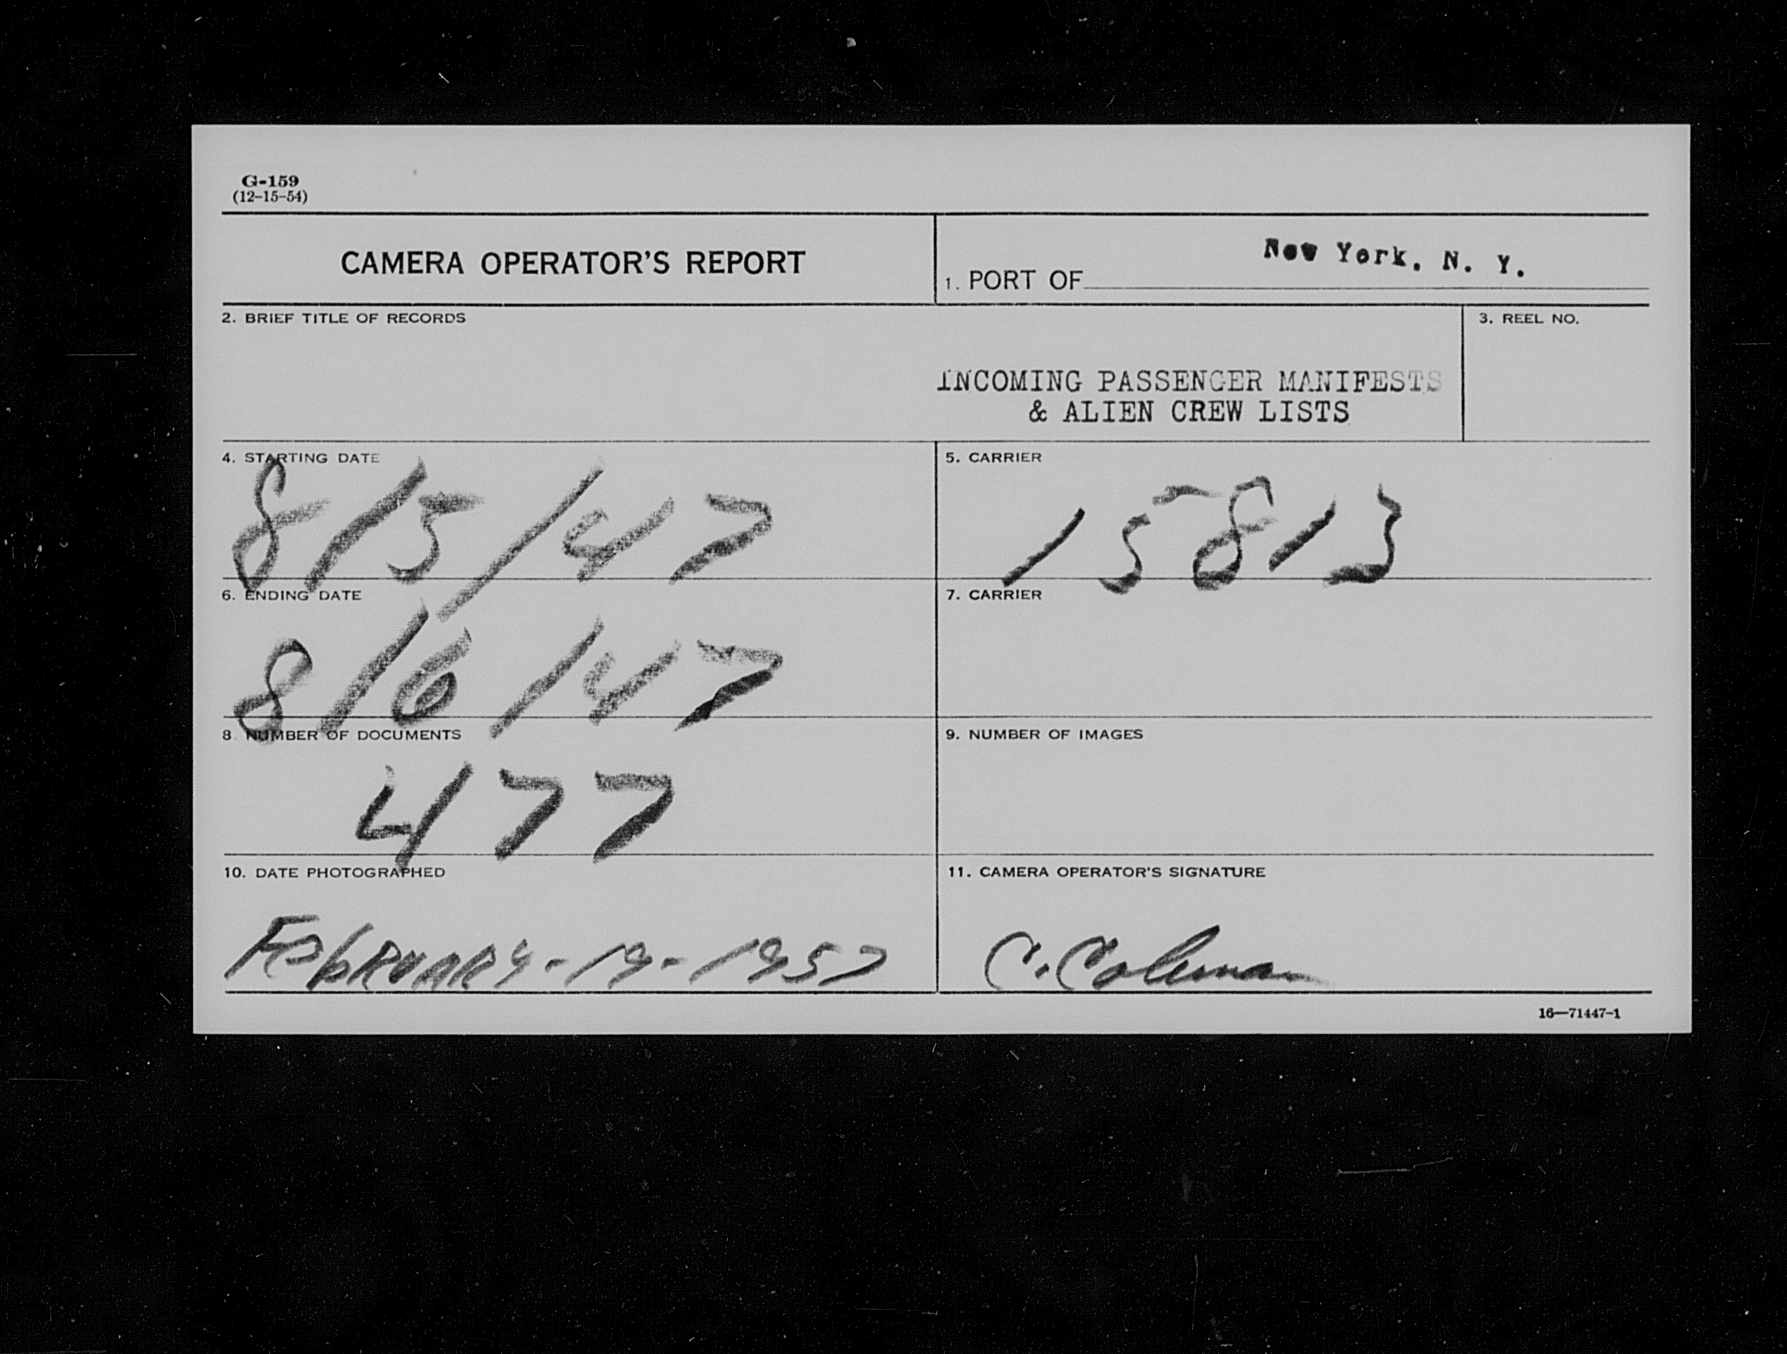 G-159
(12-15-54)
CAMERA OPERATOR'S REPORT
1. PORT OF New York, N. Y.
2. BRIEF TITLE OF RECORDS
INCOMING PASSENGER MANIFESTS
& ALIEN CREW LISTS
3. REEL NO.
4. STARTING DATE
8/5/47
5. CARRIER
15813
6. ENDING DATE
8/6/47
7. CARRIER
8 NUMBER OF DOCUMENTS
477
9. NUMBER OF IMAGES
10. DATE PHOTOGRAPHED
FebRUARY-19-1957
11. CAMERA OPERATOR'S SIGNATURE
C. Coleman
16—71447-1